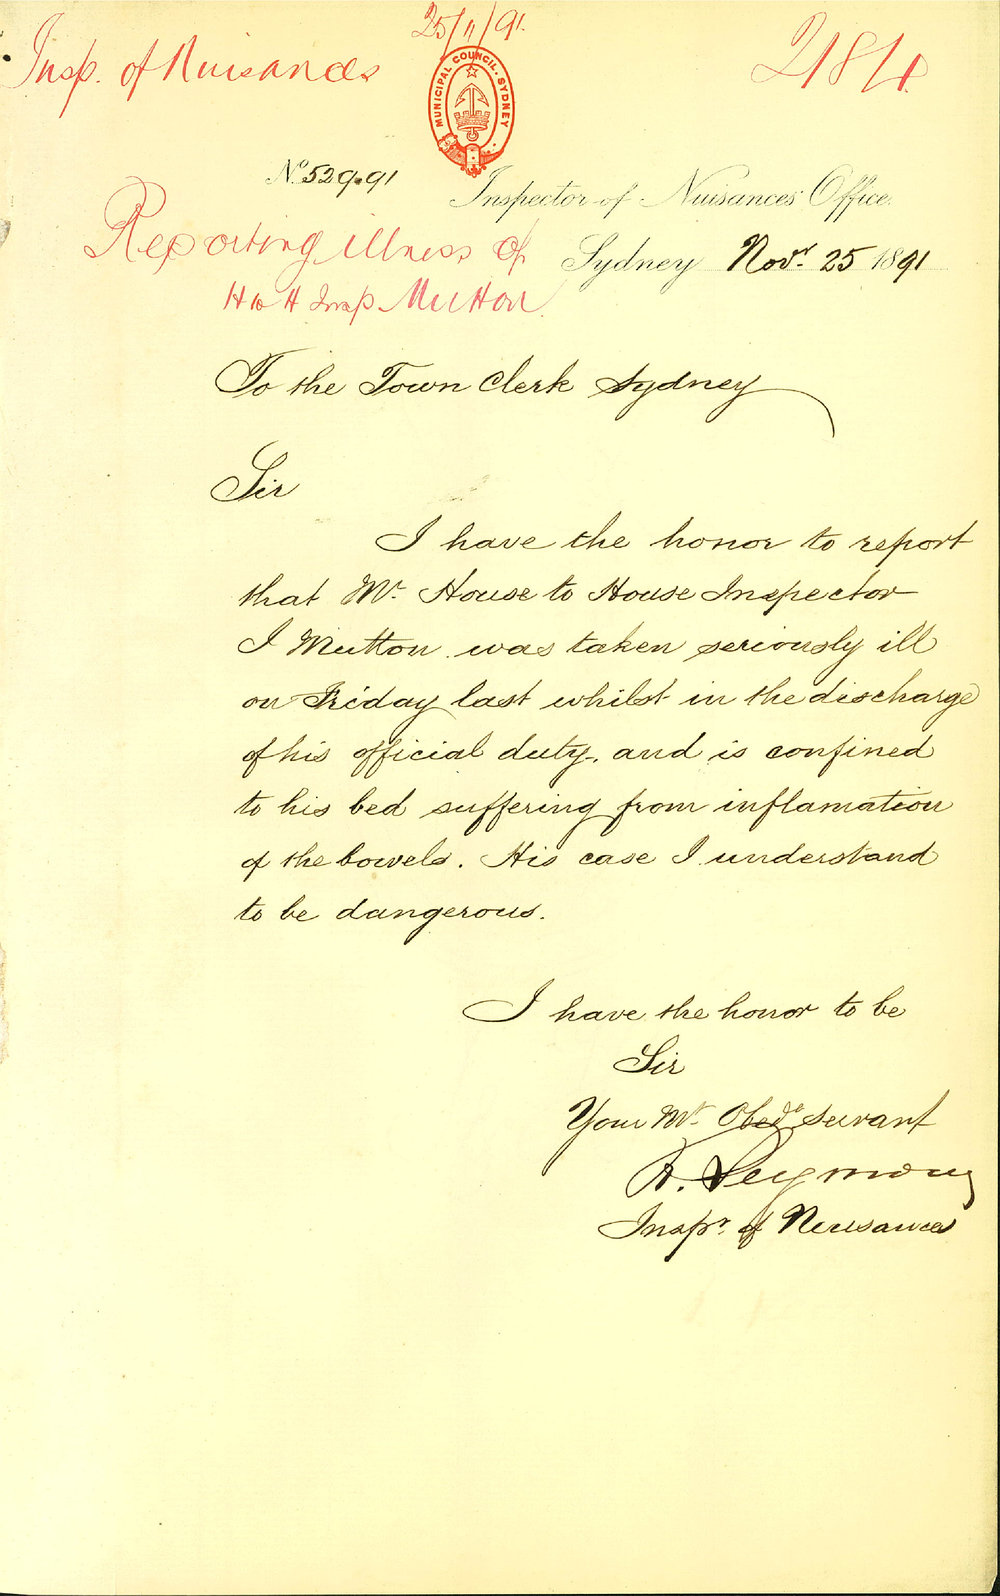 25/11/91.
Insp. of Nuisances
2184
MUNICIPAL COUNCIL. SYDNEY
No. 529.91
Inspector of Nuisances Office.
Reporting illness of
Sydney Novr. 25 1891
H to H Insp Mutton
To the Town Clerk Sydney
Sir
I have the honor to report
that Mr. House to House Inspector
J Mutton was taken seriously ill
on Friday last whilst in the discharge
of his official duty, and is confined
to his bed suffering from inflamation
of the bowels. His case I understand
to be dangerous.
I have the honor to be
Sir
Your Mt. Obedt servant
R. Seymour
Inspr. of Nuisances